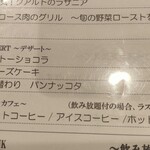 ツァルトのラザニア
ロース肉のグリル ～旬の野菜ローストを
ERT ～デザート～
トーショコラ
ーズケーキ
替わり パンナコッタ
カフェ～ (飲み放題付の場合、ラス
ットコーヒー / アイスコーヒー /ホット
NK
～飲み放